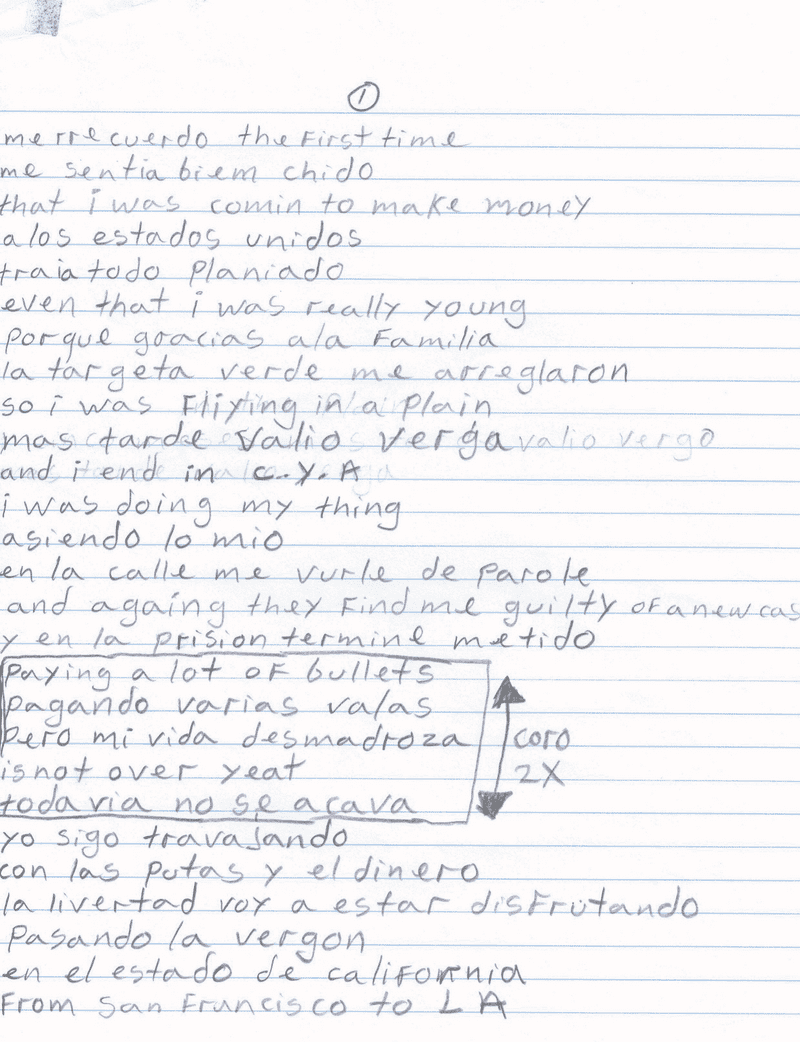 1
me rrecuerdo the First time
me sentia biem chido
that i was comin to make money
a los estados unidos
traia todo planiado
even that i was really young
porque gracias ala Familia
la targeta verde me arreglaron
so i was Fliying in a plain
mas tarde valio verga valio vergo
and i end in c.y.A
i was doing my thing
asiendo lo mio
en la calle me vurle de parole
and againg they Find me guilty of a new cas
y en la prision termine metido
paying a lot of bullets
pagando varias valas
pero mi vida desmadroza
is not over yeat
todavia no se acava
coro
2X
yo sigo travajando
con las putas y el dinero
la livertad voy a estar disFrutando
pasando la vergon
en el estado de caliFornia
From san Francisco to L A